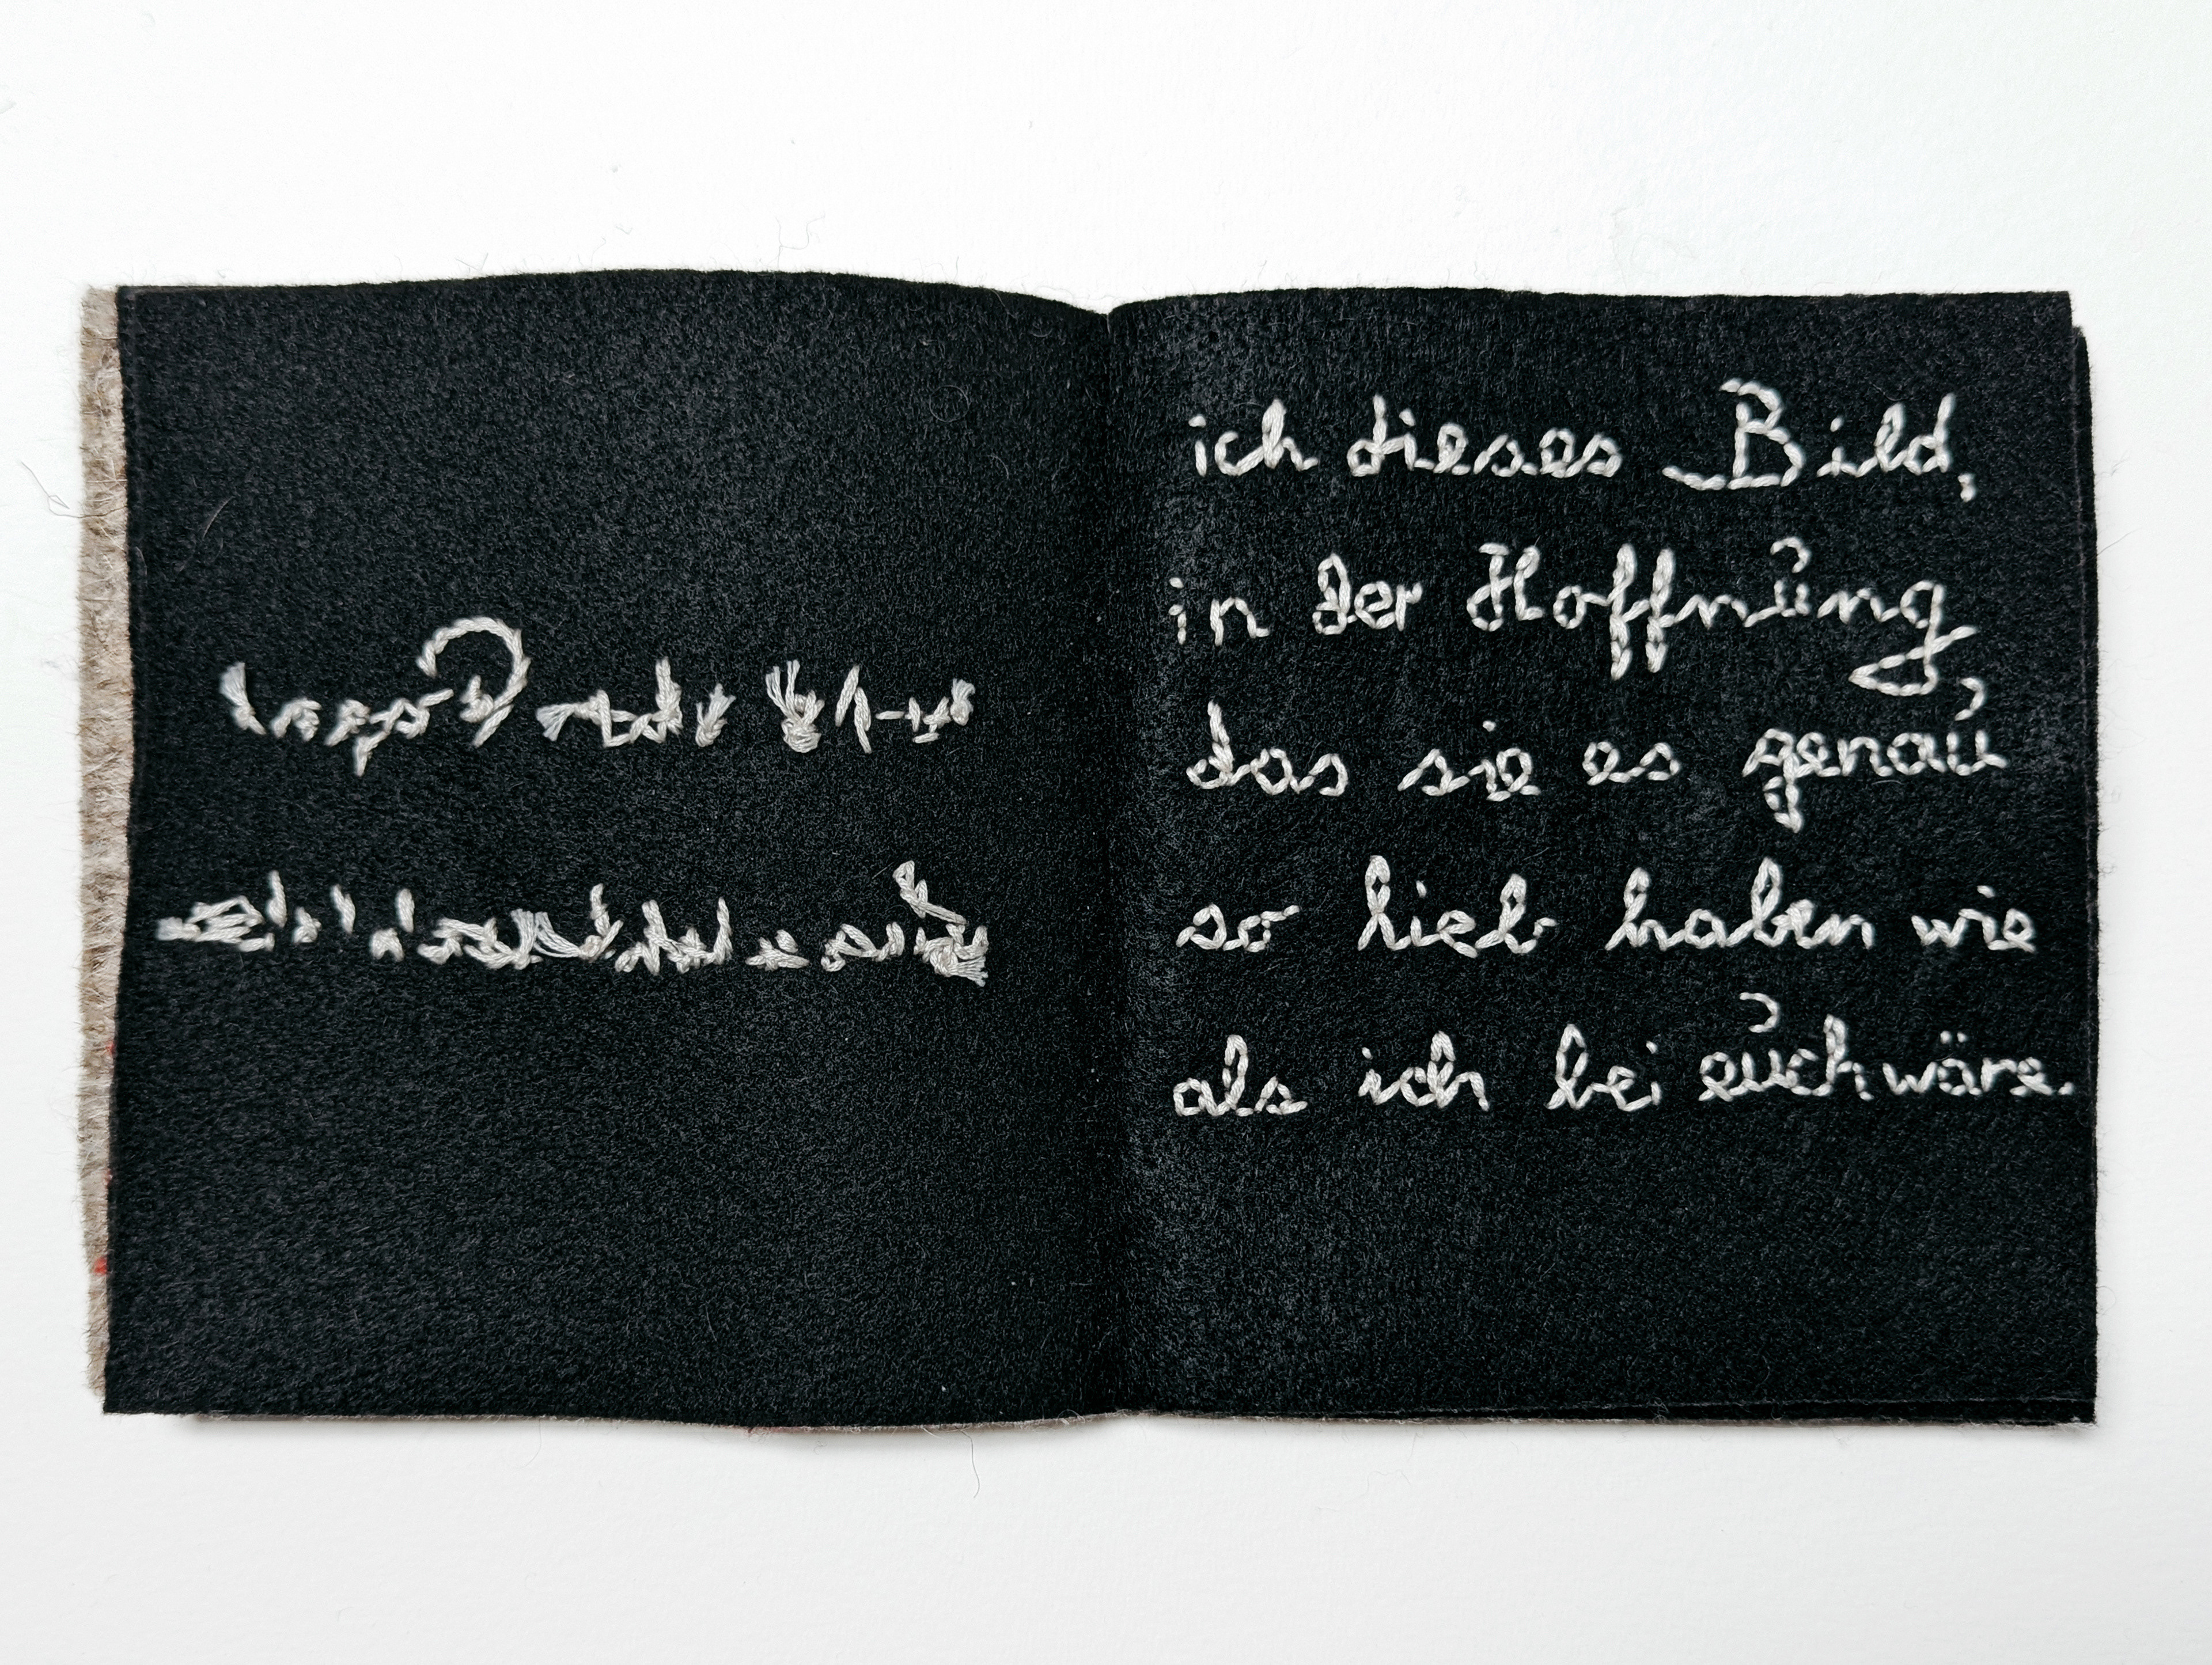 ich dieses Bild,
in der Hoffnung
das sie es genau
so lieb haben wie
als ich bei euch wäre.